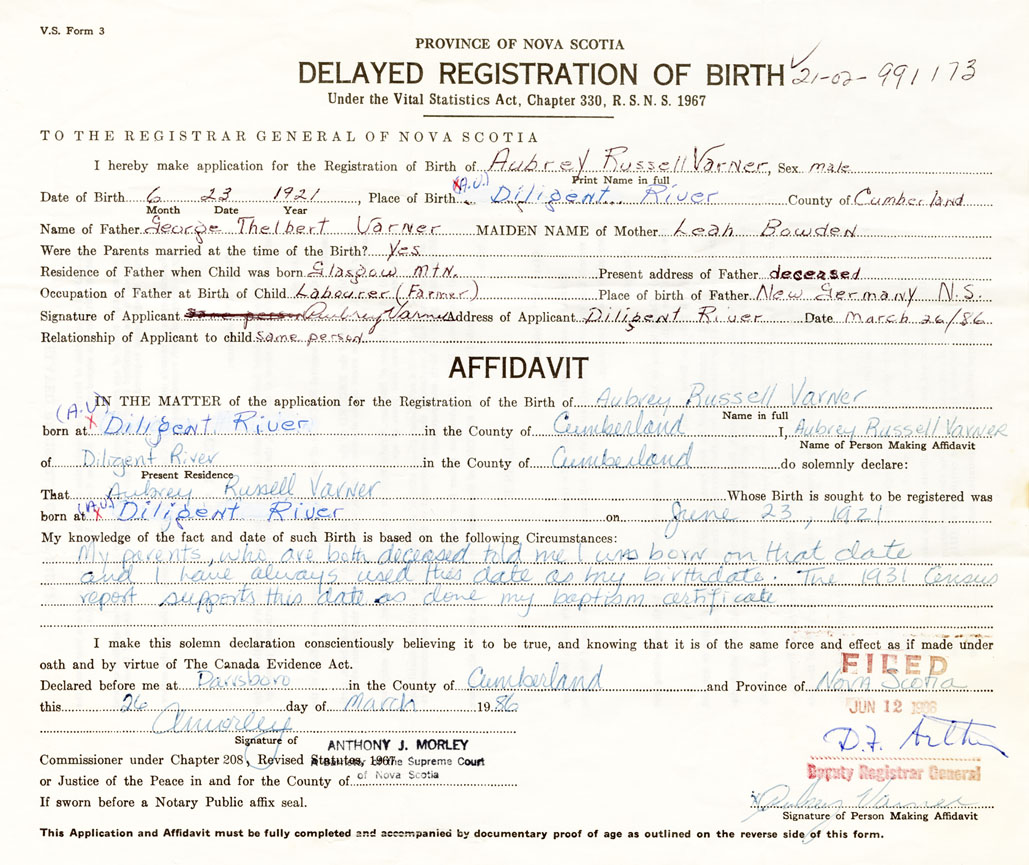 V.S. Form 3
PROVINCE OF NOVA SCOTIA
DELAYED REGISTRATION OF BIRTH 21-02-991173
Under the Vital Statistics Act, Chapter 330, R.S.N.S. 1967
TO THE REGISTRAR GENERAL OF NOVA SCOTIA
I hereby make application for the Registration of Birth of Aubrey Russell Varner, Sex male
Print Name in full
Date of Birth 6 23 1921, Place of Birth X (A.V.) Diligent River County of Cumberland
Month Date Year
Name of Father George Thelbert Varner MAIDEN NAME of Mother Leah Bowden
Were the Parents married at the time of the Birth? Yes
Residence of Father when Child was born Glasgow Mtn. Present address of Father deceased
Occupation of Father at Birth of Child Labourer (Farmer) Place of birth of Father New Germany N.S.
Signature of Applicant same person Aubrey Varner Address of Applicant Diligent River Date March 26/86
Relationship of Applicant to child same person
AFFIDAVIT
IN THE MATTER of the application for the Registration of the Birth of Aubrey Russell Varner
Name in full
(A.V.) X born at Diligent River in the County of Cumberland I, Aubrey Russell Varner
Name of Person Making Affidavit
of Diligent River in the County of Cumberland do solemnly declare:
Present Residence
That Aubrey Russell Varner Whose Birth is sought to be registered was
born at (A.V.) X Diligent River on June 23, 1921
My knowledge of the fact and date of such Birth is based on the following Circumstances:
My parents, who are both deceased told me I was born on that date
and I have always used this date as my birthdate. The 1931 Census
report supports this date as done my baptism certificate
I make this solemn declaration conscientiously believing it to be true, and knowing that it is of the same force and effect as if made under
oath and by virtue of The Canada Evidence Act.
FILED
Declared before me at Parrsboro in the County of Cumberland and Province of Nova Scotia
this 26 day of March 1986
JUN 12 1986
AMorley
D.F.
Signature of
ANTHONY J. MORLEY
Commissioner under Chapter 208, Revised Statutes, 1967
A Barrister of the Supreme Court
of Nova Scotia
Deputy Registrar General
or Justice of the Peace in and for the County of
If sworn before a Notary Public affix seal.
X Aubrey Varner
Signature of Person Making Affidavit
This Application and Affidavit must be fully completed and accompanied by documentary proof of age as outlined on the reverse side of this form.